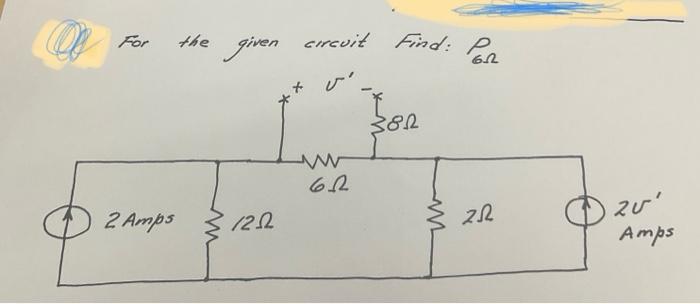 For the given circuit Find: P6Ω
+ v' -
8Ω
6Ω
2 Amps
12Ω
2Ω
2v'
Amps